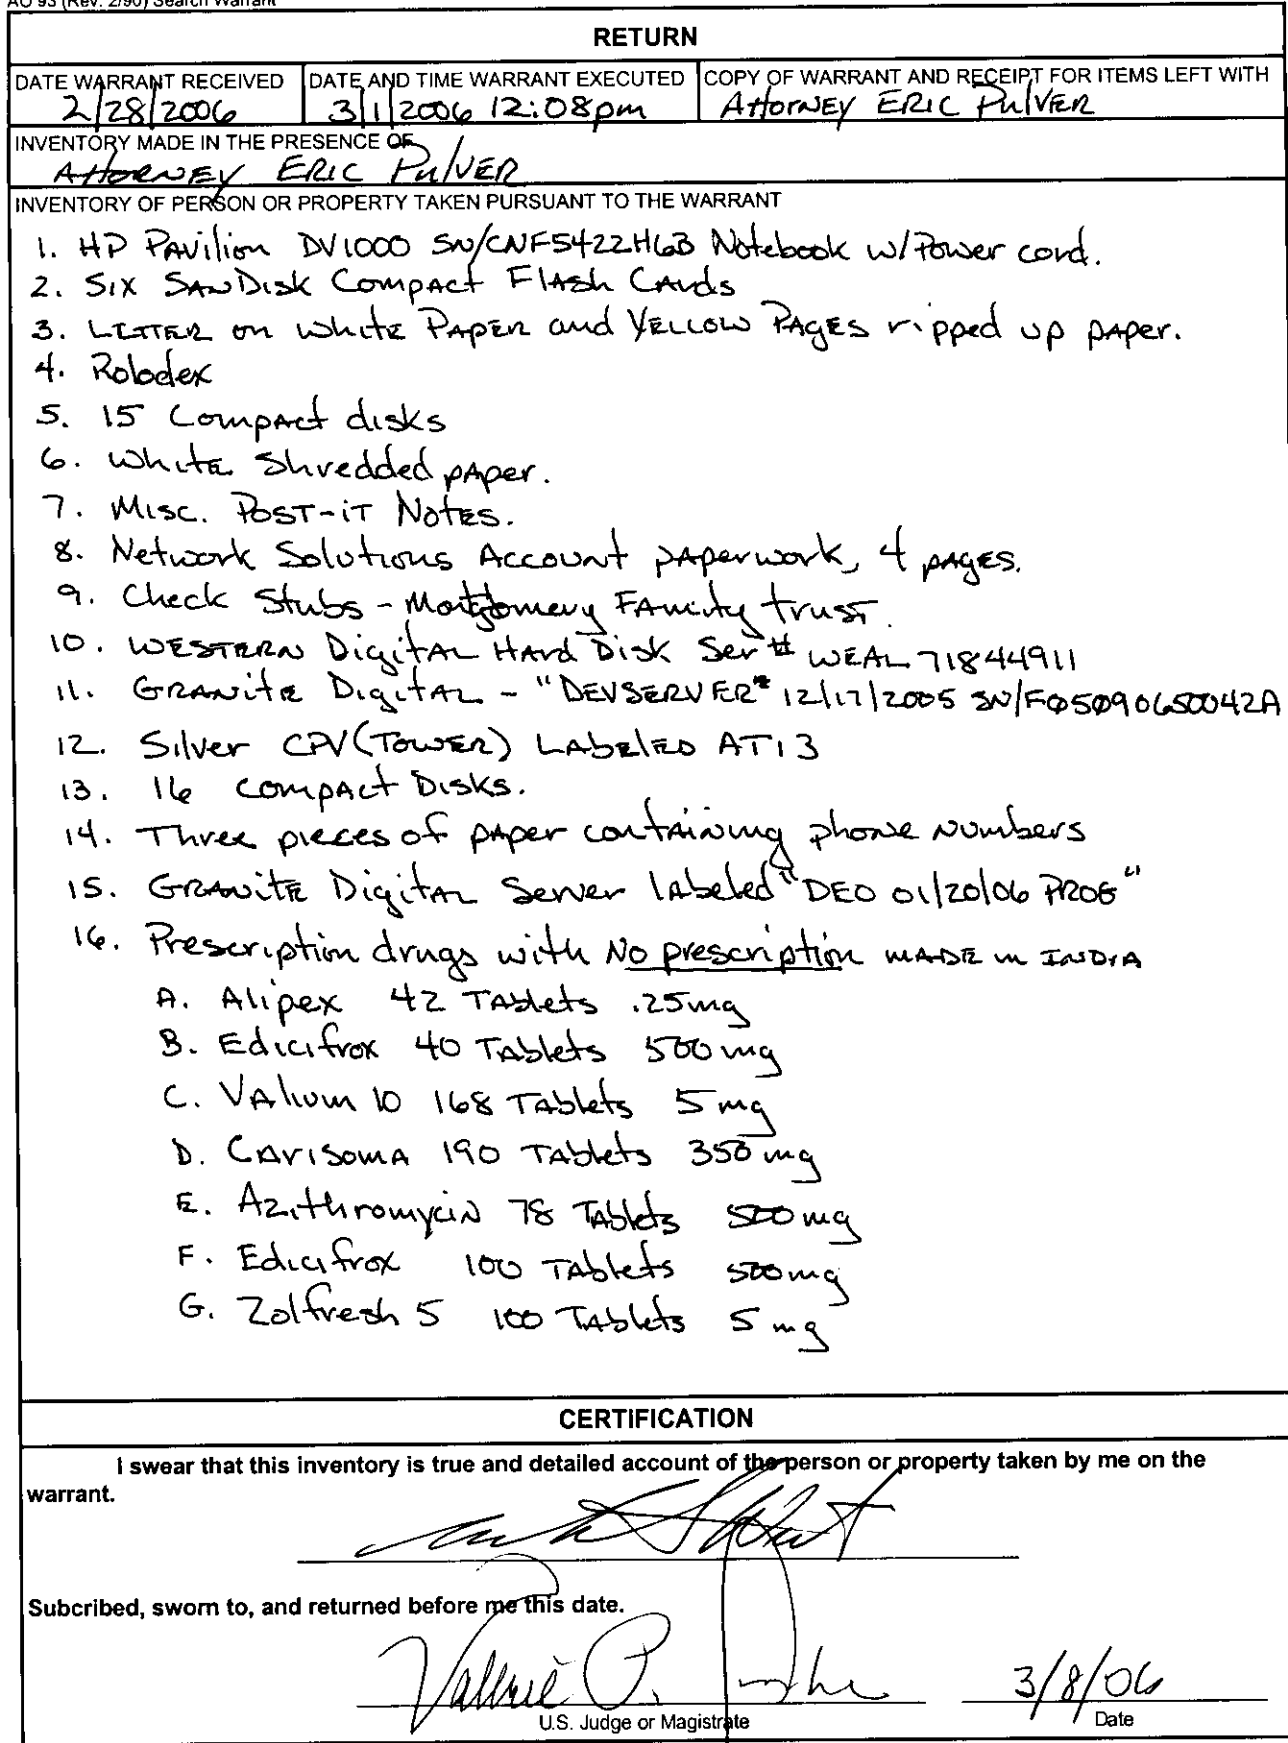 AO 93 (Rev. 2/90) Search Warrant
RETURN
DATE WARRANT RECEIVED
2/28/2006
DATE AND TIME WARRANT EXECUTED
3/1/2006 12:08pm
COPY OF WARRANT AND RECEIPT FOR ITEMS LEFT WITH
Attorney ERIC Pulver
INVENTORY MADE IN THE PRESENCE OF
Attorney ERIC Pulver
INVENTORY OF PERSON OR PROPERTY TAKEN PURSUANT TO THE WARRANT
1. HP Pavilion DV1000 SN/CNF5422H6B Notebook w/Power cord.
2. Six SanDisk Compact Flash Cards
3. Letter on white Paper and Yellow Pages ripped up paper.
4. Rolodex
5. 15 Compact disks
6. White Shredded paper.
7. Misc. Post-it Notes.
8. Network Solutions Account paperwork, 4 pages.
9. Check Stubs - Montgomery Family trust.
10. Western Digital Hard Disk Ser# WEAL 71844911
11. Granite Digital - "DEVSERVER" 12/17/2005 SN/F05090650042A
12. Silver CPU (Tower) Labeled AT13
13. 16 Compact Disks.
14. Three pieces of paper containing phone numbers
15. Granite Digital Server labeled "DEO 01/20/06 PROG"
16. Prescription drugs with No prescription made in India
A. Alipex 42 Tablets .25mg
B. Edicifrox 40 Tablets 500 mg
C. Valium 10 168 Tablets 5 mg
D. Carisoma 190 Tablets 350 mg
E. Azithromycin 78 Tablets 500 mg
F. Edicifrox 100 Tablets 500mg
G. Zolfresh 5 100 Tablets 5 mg
CERTIFICATION
I swear that this inventory is true and detailed account of the person or property taken by me on the
warrant.
Subcribed, sworn to, and returned before me this date.
Valerie P.
3/8/06
U.S. Judge or Magistrate
Date